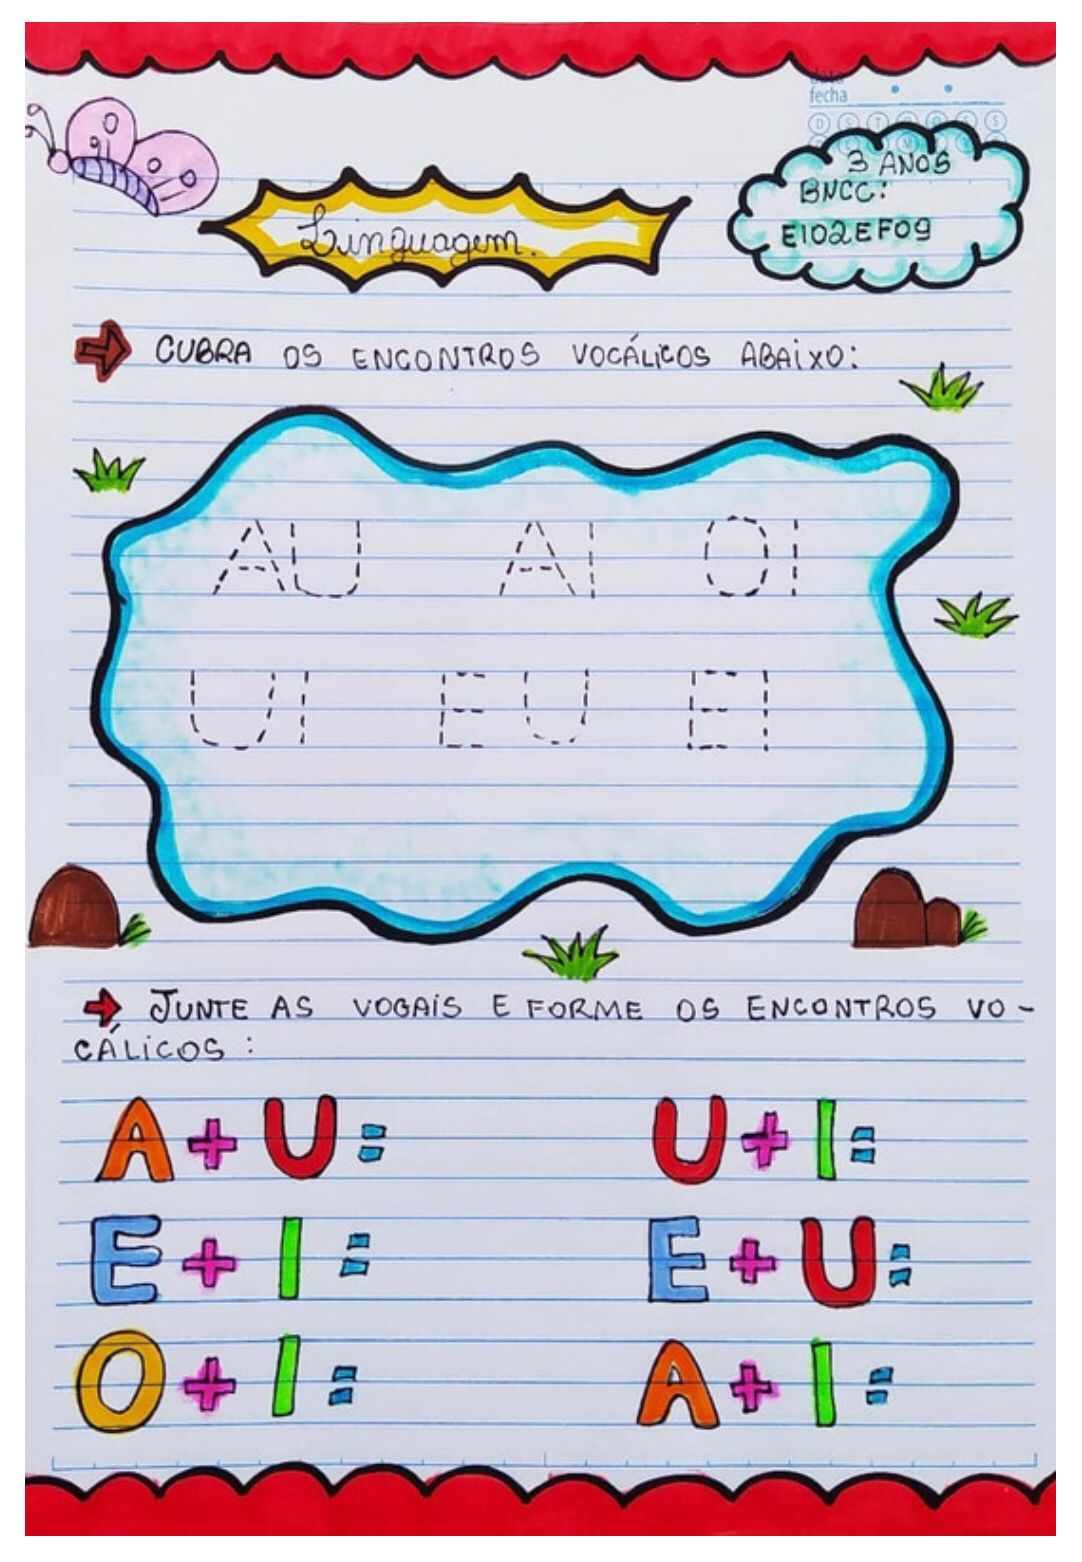 fecha
3 ANOS
BNCC:
EI02EF09
Linguagem.
CUBRA OS ENCONTROS VOCÁLICOS ABAIXO:
AU AI OI
UI EU EI
JUNTE AS VOGAIS E FORME OS ENCONTROS VO-
CÁLICOS:
A+U= U+I=
E+I= E+U=
O+I= A+I=